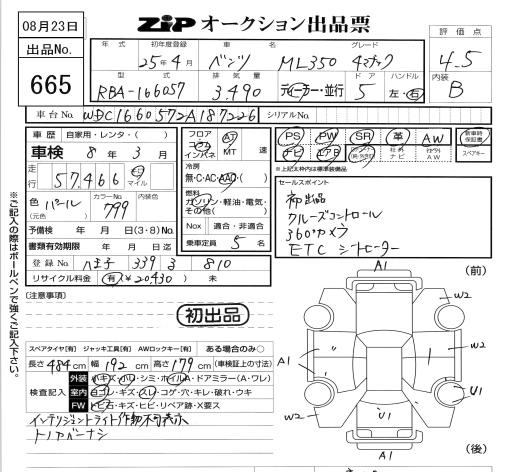 08月23日
ZIP オークション出品票
出品No.
665
年式
初年度登録
車名
グレード
25年4月
ベンツ
ML350 4マチック
型式
排気量
ドア
ハンドル
RBA-166057
3.490
ディーラー・並行
5
左・右
評価点
4.5
内装
B
車台No.
WDC1660572A187226
シリアルNo.
車歴
自家用・レンタ・( )
車検 8年3月
走行
57.466
キロ
マイル
色
パール
(元色)
カラーNo.
799
内装色
予備検 年 月 日(3・8)No.
書類有効期限 年 月 日迄
登録No.
八王子 339 ろ 810
リサイクル料金
有(¥20,430) 未
フロア
コラム
インパネ
AT
MT
速
冷房
無・C・AC・AAC・( )
燃料
ガソリン・軽油・電気・
その他( )
Nox
適合・非適合
乗車定員
5
名
PS
PW
SR
革
AW
ナビ
エアB
社外
ナビ
社外
AW
新車時
保証書
スペアキー
※上記太枠内は標準装備品
セールスポイント
初出品
クルーズコントロール
360°カメラ
ETC シートヒーター
※ご記入の際はボールペンで強くご記入下さい。
(注意事項)
初出品
スペアタイヤ[有] ジャッキ工具[有] AWロックキー[有] ある場合のみ○
長さ 484 cm 幅 192 cm 高さ 179 cm (車検証上の寸法)
検査記入
外装
小キズ・小U・シミ・ホイルA・ドアミラー(A・ワレ)
室内
白コレ・キズ・スレ・コゲ・穴・キレ・破れ・ウキ
FW
トビ石・キズ・ヒビ・リペア跡・X要ス
インテリジェントライト作動不可表示
トノカバーナシ
(前)
A1
W2
W2
A1
1
U1
W2
U1
A1
(後)